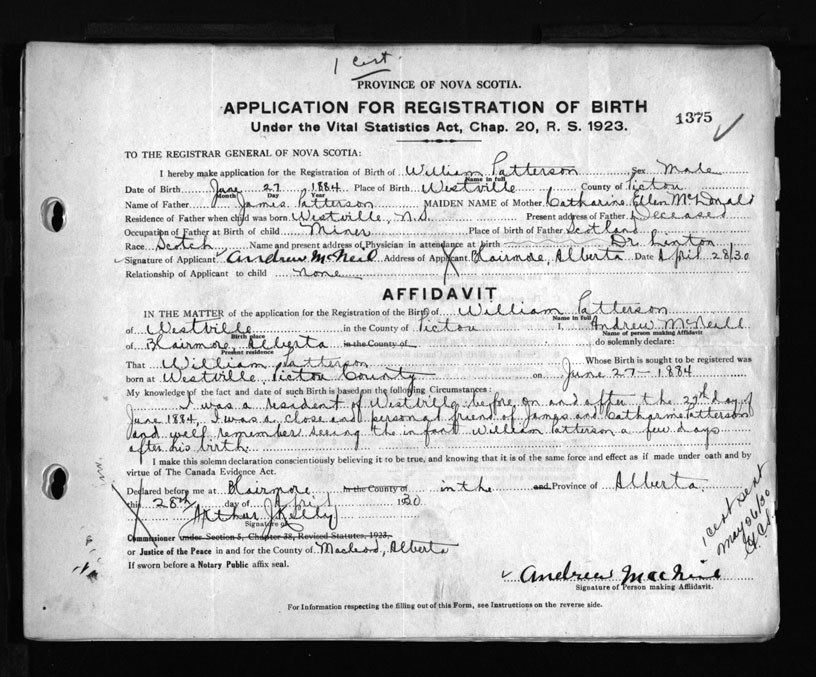 1 Cert.
PROVINCE OF NOVA SCOTIA.
APPLICATION FOR REGISTRATION OF BIRTH
1375
Under the Vital Statistics Act, Chap. 20, R. S. 1923.
TO THE REGISTRAR GENERAL OF NOVA SCOTIA:
I hereby make application for the Registration of Birth of William Patterson Sex Male
Name in full
Date of Birth June 27 1884 Place of Birth Westville County of Pictou
Month Day Year
Name of Father James Patterson MAIDEN NAME of Mother Catharine Ellen McDonald
Residence of Father when child was born Westville, N.S. Present address of Father Deceased
Occupation of Father at Birth of child Miner Place of birth of Father Scotland
Race Scotch Name and present address of Physician in attendance at birth Dr. Linton
Signature of Applicant Andrew McNeil Address of Applicant Blairmore, Alberta Date April 28/30
Relationship of Applicant to child none
AFFIDAVIT
IN THE MATTER of the application for the Registration of the Birth of William Patterson
Name in full
of Westville in the County of Pictou I, Andrew McNeill
Birth place Name of person making Affidavit
of Blairmore, Alberta in the County of do solemnly declare:
Present residence
That William Patterson Whose Birth is sought to be registered was
born at Westville Pictou County on June 27 - 1884
My knowledge of the fact and date of such Birth is based on the following Circumstances:
I was a resident of Westville before, on and after the 27th day of
June 1884. I was a close and personal friend of James and Catharine Patterson
and well remember seeing the infant William Patterson a few days
after his birth.
I make this solemn declaration conscientiously believing it to be true, and knowing that it is of the same force and effect as if made under oath and by
virtue of The Canada Evidence Act.
Declared before me at Blairmore in the County of in the and Province of Alberta
this 28th day of April 1930
Arthur J Kelly
Signature of
Commissioner under Section 5, Chapter 38, Revised Statutes, 1923.
or Justice of the Peace in and for the County of Macleod, Alberta
If sworn before a Notary Public affix seal.
1 Cert sent
May 06/30
Andrew MacNeil
Signature of Person making Affidavit.
For Information respecting the filling out of this Form, see Instructions on the reverse side.